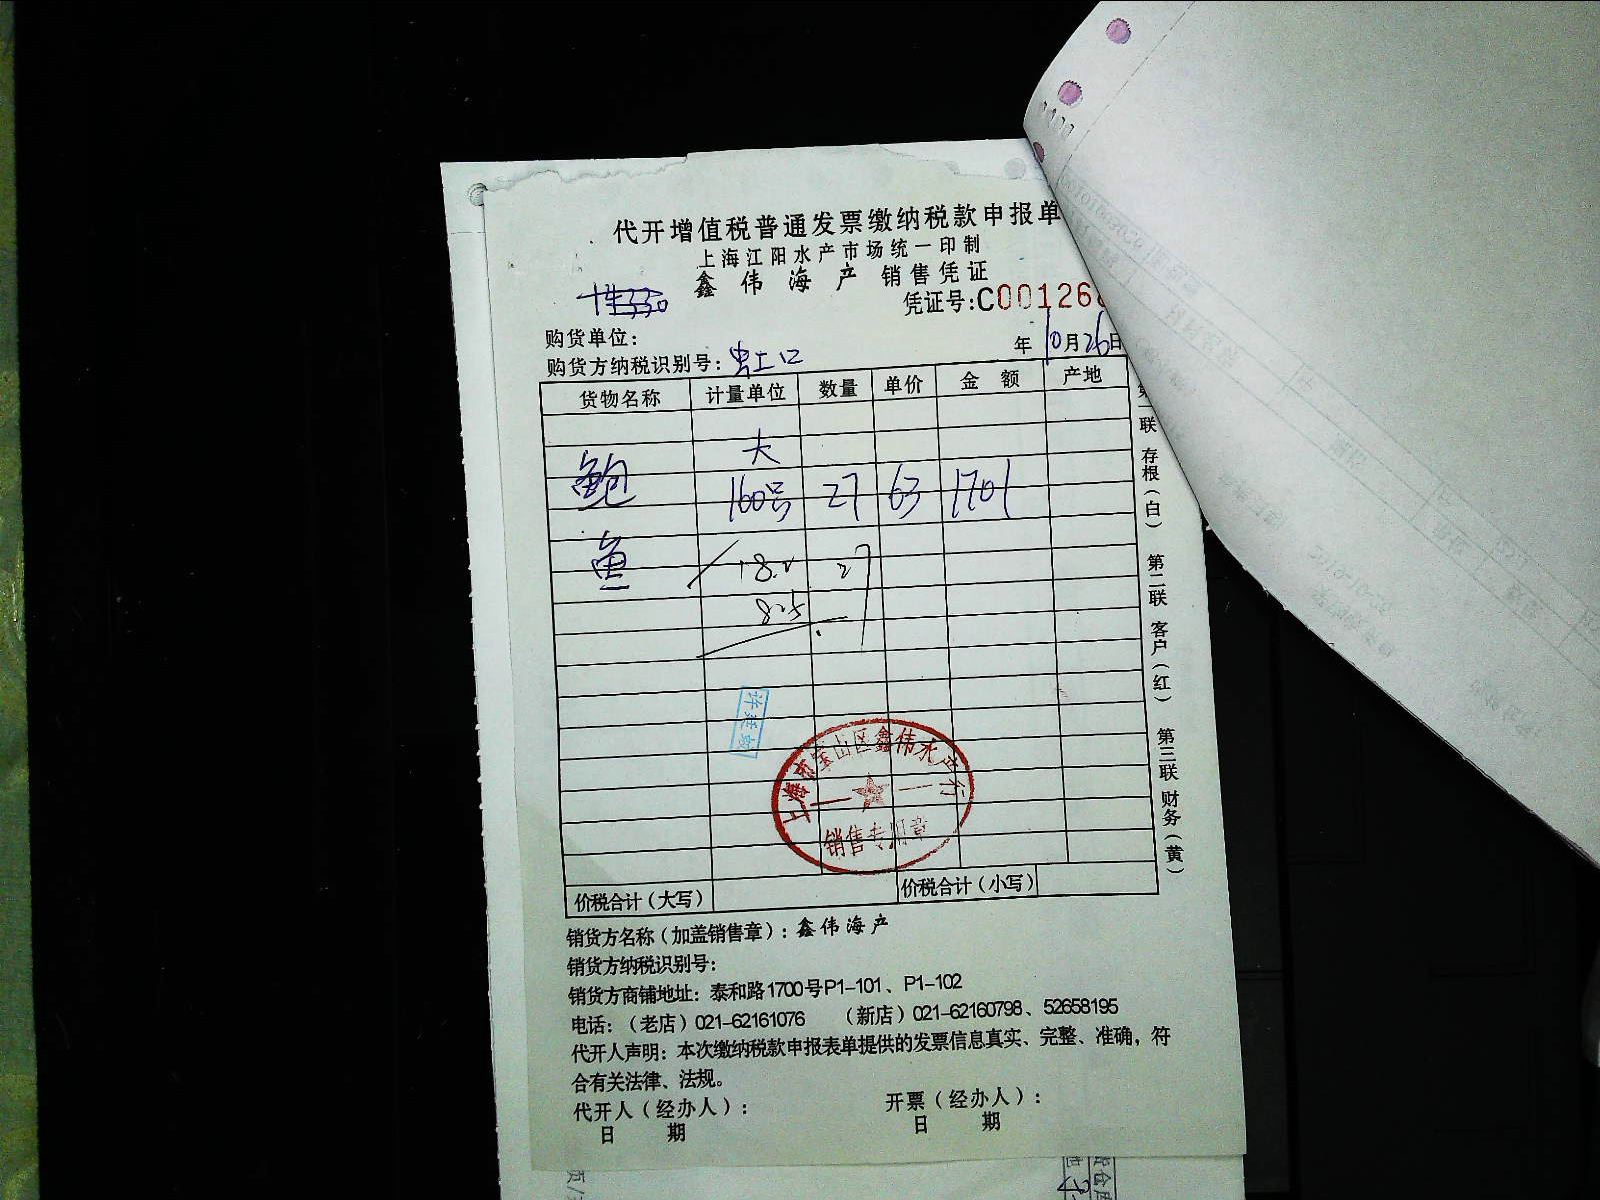 代开增值税普通发票缴纳税款申报单
上海江阳水产市场统一印制
鑫伟海产 销售凭证
凭证号:C001268
购货单位:
年10月26日
购货方纳税识别号: 虹口
货物名称 计量单位 数量 单价 金额 产地
大
鲍 160号 27 63 1701
鱼
27
价税合计(大写) 价税合计(小写)
第一联 存根(白) 第二联 客户(红) 第三联 财务(黄)
上海市宝山区鑫伟水产行
销售专用章
销货方名称(加盖销售章): 鑫伟海产
销货方纳税识别号:
销货方商铺地址: 泰和路1700号P1-101、P1-102
电话:(老店)021-62161076 (新店)021-62160798、52658195
代开人声明: 本次缴纳税款申报表单提供的发票信息真实、完整、准确,符
合有关法律、法规。
代开人(经办人): 开票(经办人):
日期 日期